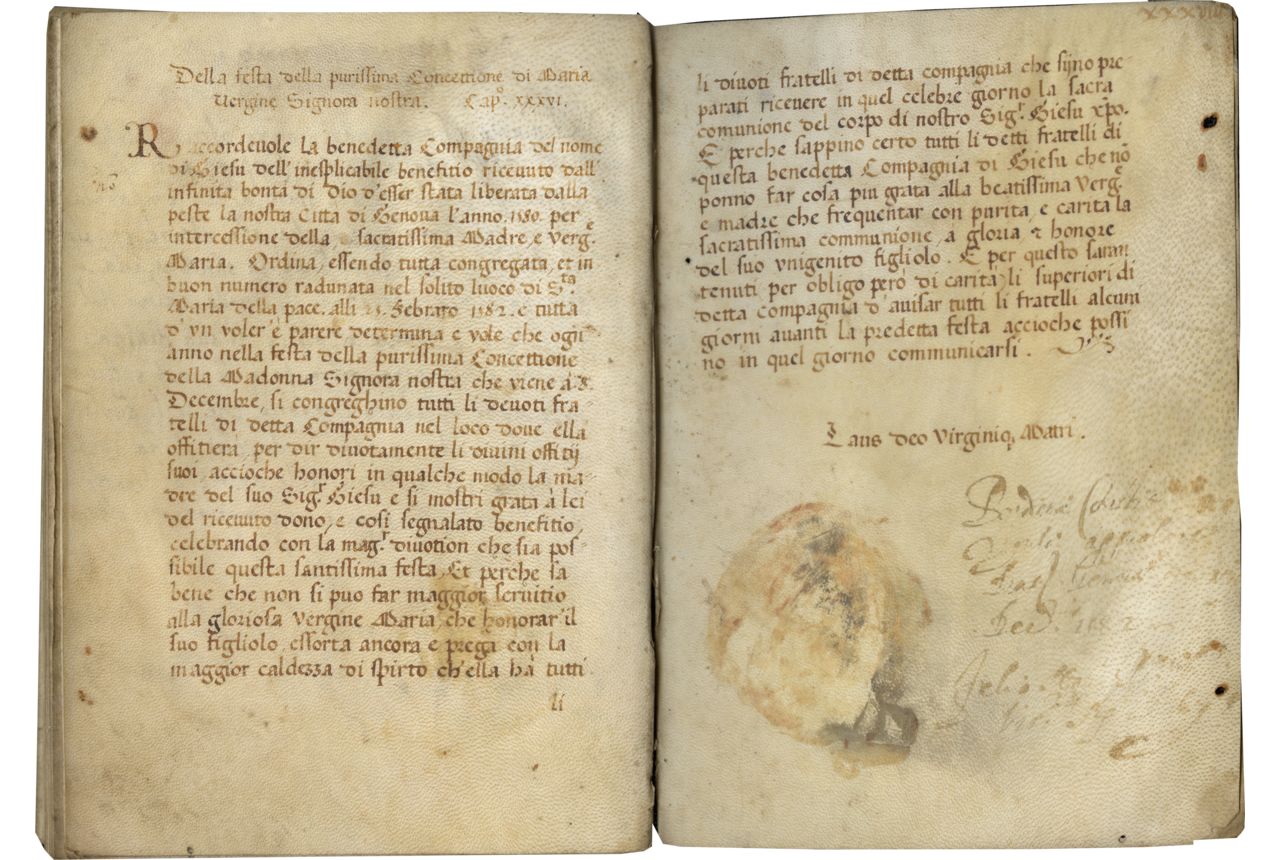 Della festa della purissima Concettione di Maria
Vergine Signora nostra. Cap.º XXXVI.
Raccordeuole la benedetta Compagnia del nome
di Giesu dell'inesplicabile benefitio riceuuto dall'
infinita bontà di Dio d'esser stata liberata dalla
peste la nostra Città di Genoua l'anno. 1580. per
intercessione della sacratissima Madre, e Verg.e
Maria. Ordina, essendo tutta congregata, et in
buon numero radunata nel solito luoco di S.ta
Maria della pace. alli 25. Febraro 1582. e tutta
d'un voler è parere determina e vole che ogni
anno nella festa della purissima Concettione
della Madonna Signora nostra che viene à 8.
Decembre, si congreghino tutti li deuoti fra
telli di detta Compagnia nel loco doue ella
offitiera, per dir diuotamente li diuini offitij
suoi, accioche honori in qualche modo la ma
dre del suo Sig.r Giesu e si mostri grata à lei
del riceuuto dono, e cosi segnalato benefitio,
celebrando con la mag.r diuotion che sia pos
sibile questa santissima festa, Et perche sa
bene che non si puo far maggior seruitio
alla gloriosa vergine Maria, che honorar'il
suo figliolo, essorta ancora e prega con la
maggior caldezza di spirto ch'ella ha tutti
li
XXXVIII
li diuoti fratelli di detta compagnia che sijno pre
parati riceuere in quel celebre giorno la sacra
comunione del corpo di nostro Sig.r Giesu xp̃o.
E perche sappino certo tutti li detti fratelli di
questa benedetta Compagnia di Giesu che nõ
ponno far cosa piu grata alla beatissima verg.e
e madre che frequentar con purità, e carità la
sacratissima communione, à gloria & honore
del suo vnigenito figliolo. E per questo saran
tenuti per obligo però di carità li superiori di
detta compagnia d'auisar tutti li fratelli alcuni
giorni auanti la predetta festa accioche possi
no in quel giorno communicarsi.
Laus deo Virginiq, Matri.